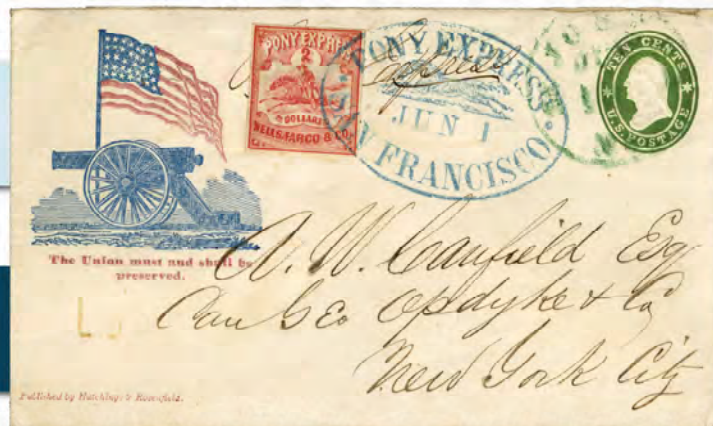 PONY EXPRESS
2
DOLLARS
WELLS, FARGO & CO.
PONY EXPRESS
JUN 1
SAN FRANCISCO
TEN CENTS
U.S. POSTAGE
The Union must and shall be
preserved.
A. W. Canfield Esq
Care Geo Opdyke & Co
New York City
Published by Hutchings & Rosenfield.